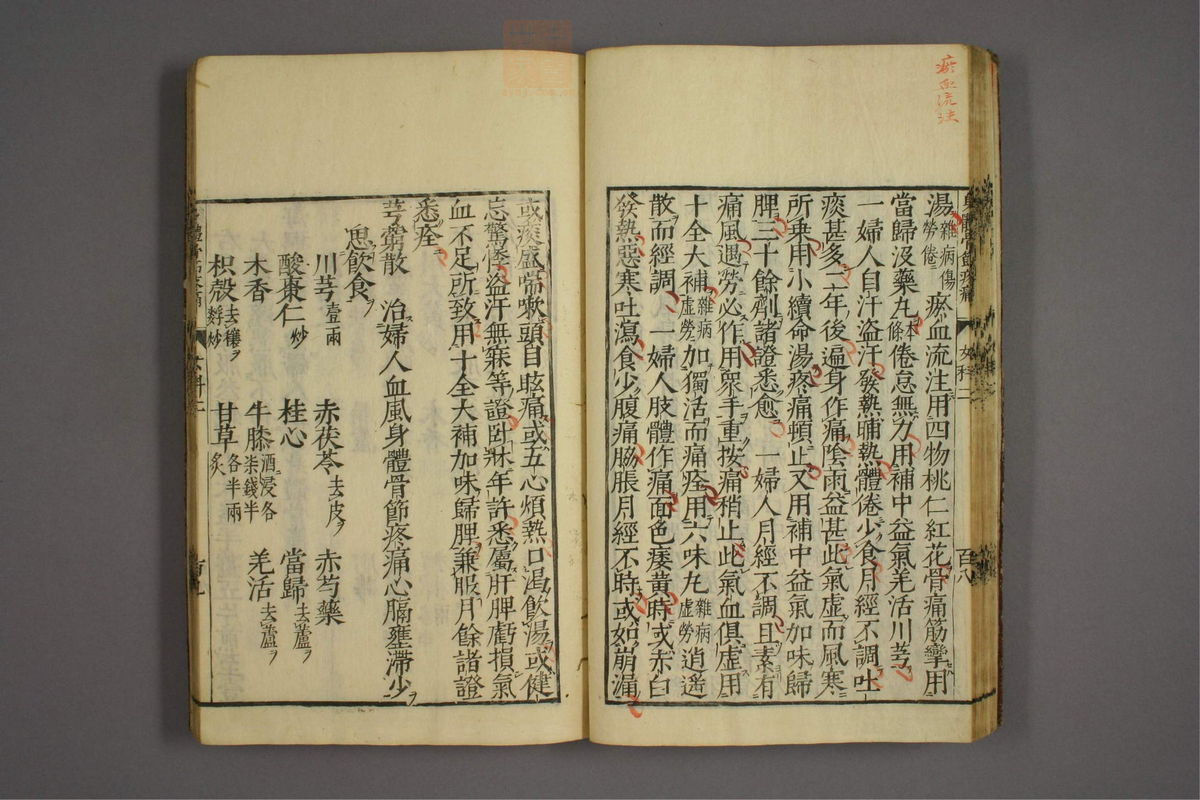 瘀血流注
湯雜病傷勞倦瘀血流注用四物桃仁紅花骨痛筋攣用
當歸沒藥丸本條倦怠無力用補中益氣羌活川芎
一婦人自汗盜汗發熱晡熱體倦少食月經不調吐
痰甚多二年後遍身作痛陰雨益甚此氣虛而風寒
所乗用小續命湯疼痛頓止又用補中益氣加味歸
脾三十餘劑諸證悉愈 一婦人月經不調且素有
痛風遇勞必作用衆手重按痛稍止此氣血俱虛用
十全大補雜病虛勞加獨活而痛痊用六味丸雜病虛勞逍遥
散而經調 一婦人肢體作痛面色痿黃時或赤白
發熱惡寒吐瀉食少腹痛脇脹月經不時或如崩漏
女科二
百八
或痰盛喘嗽頭目眩痛或五心煩熱口渴飲湯或健
忘驚悸盜汗無寐等證卧牀年許悉屬肝脾虧損氣
血不足所致用十全大補加味歸脾兼服月餘諸證
悉痊
芎藭散 治婦人血風身體骨節疼痛心膈壅滯少
思飲食
川芎壹兩 赤茯苓去皮 赤芍藥
酸棗仁炒 桂心 當歸去蘆
木香 牛膝酒浸各柒錢半 羌活去蘆
枳殻去穰麩炒 甘草各半兩炙